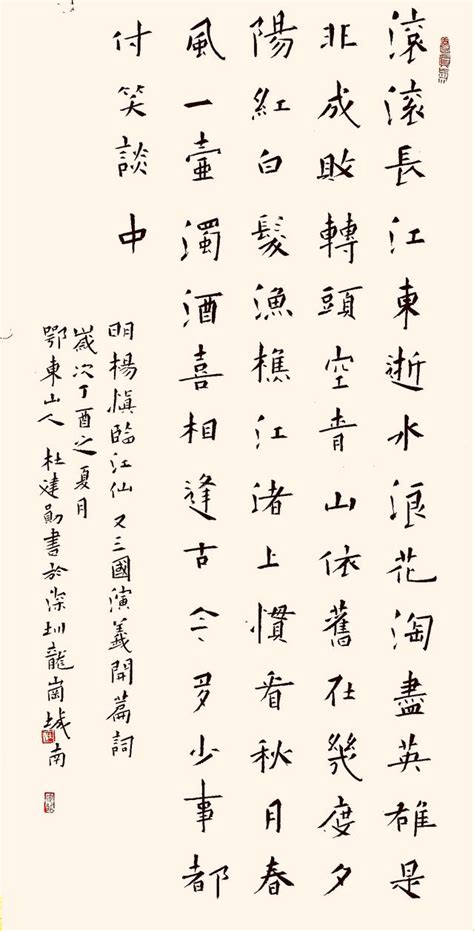 滚滚長江東逝水浪花淘盡英雄是
非成敗轉頭空青山依舊在幾度夕
陽紅白髮漁樵江渚上慣看秋月春
風一壺濁酒喜相逢古今多少事都
付笑談中
明楊慎臨江仙又三國演義開篇詞
歲次丁酉之夏月
鄂東山人杜建勛書於深圳龍崗城南